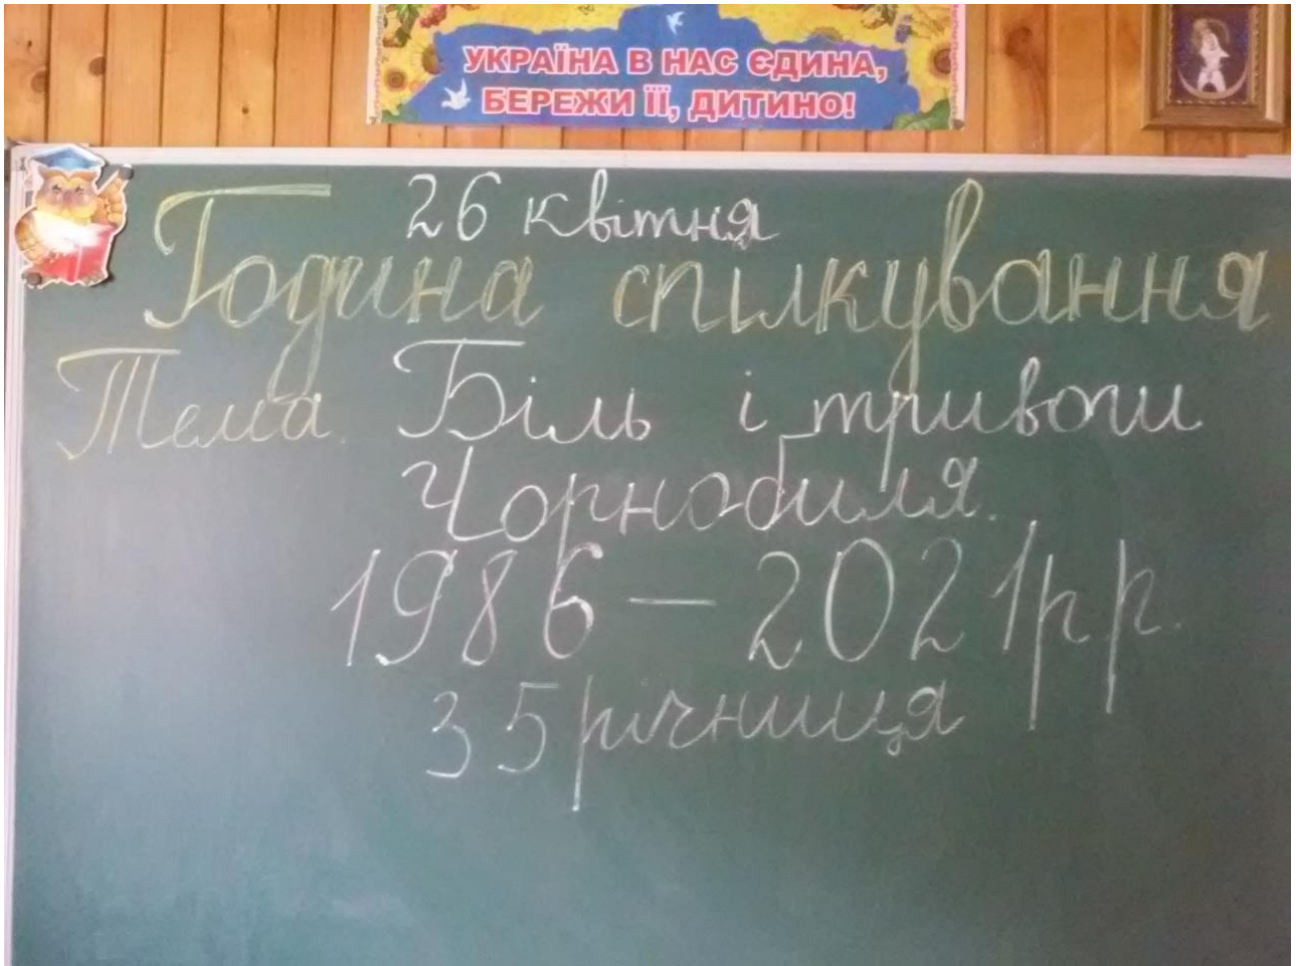 УКРАЇНА В НАС ЄДИНА,
БЕРЕЖИ ЇЇ, ДИТИНО!
26 квітня
Година спілкування
Тема. Біль і тривоги
Чорнобиля.
1986 – 2021 рр.
35 річниця